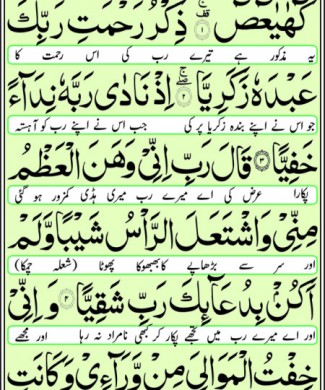 كٓهٰيٰعٓصٓ ۚ ۟ ۱ ذِكْرُ رَحْمَتِ رَبِّكَ
یہ مذکور ہے تیرے رب کی اس رحمت کا
عَبْدَهٗ زَكَرِيَّا ۚ ۲ اِذْ نَادٰى رَبَّهٗ نِدَآءً
جو اس نے اپنے بندہ زکریا پر کی جب اس نے اپنے رب کو آہستہ
خَفِيًّا ۳ قَالَ رَبِّ اِنِّىْ وَهَنَ الْعَظْمُ
پکارا عرض کی اے میرے رب میری ہڈی کمزور ہو گئی
مِنِّىْ وَاشْتَعَلَ الرَّاْسُ شَيْبًا وَّلَمْ
اور سر سے بڑھاپے کا بھبھوکا پھوٹا (شعلہ چمکا)
اَكُنْۢ بِدُعَآئِكَ رَبِّ شَقِيًّا ۴ وَاِنِّىْ
اور اے میرے رب میں تجھے پکار کر کبھی نامراد نہ رہا اور مجھے
خِفْتُ الْمَوَالِىَ مِنْ وَّرَآءِىْ وَكَانَتِ